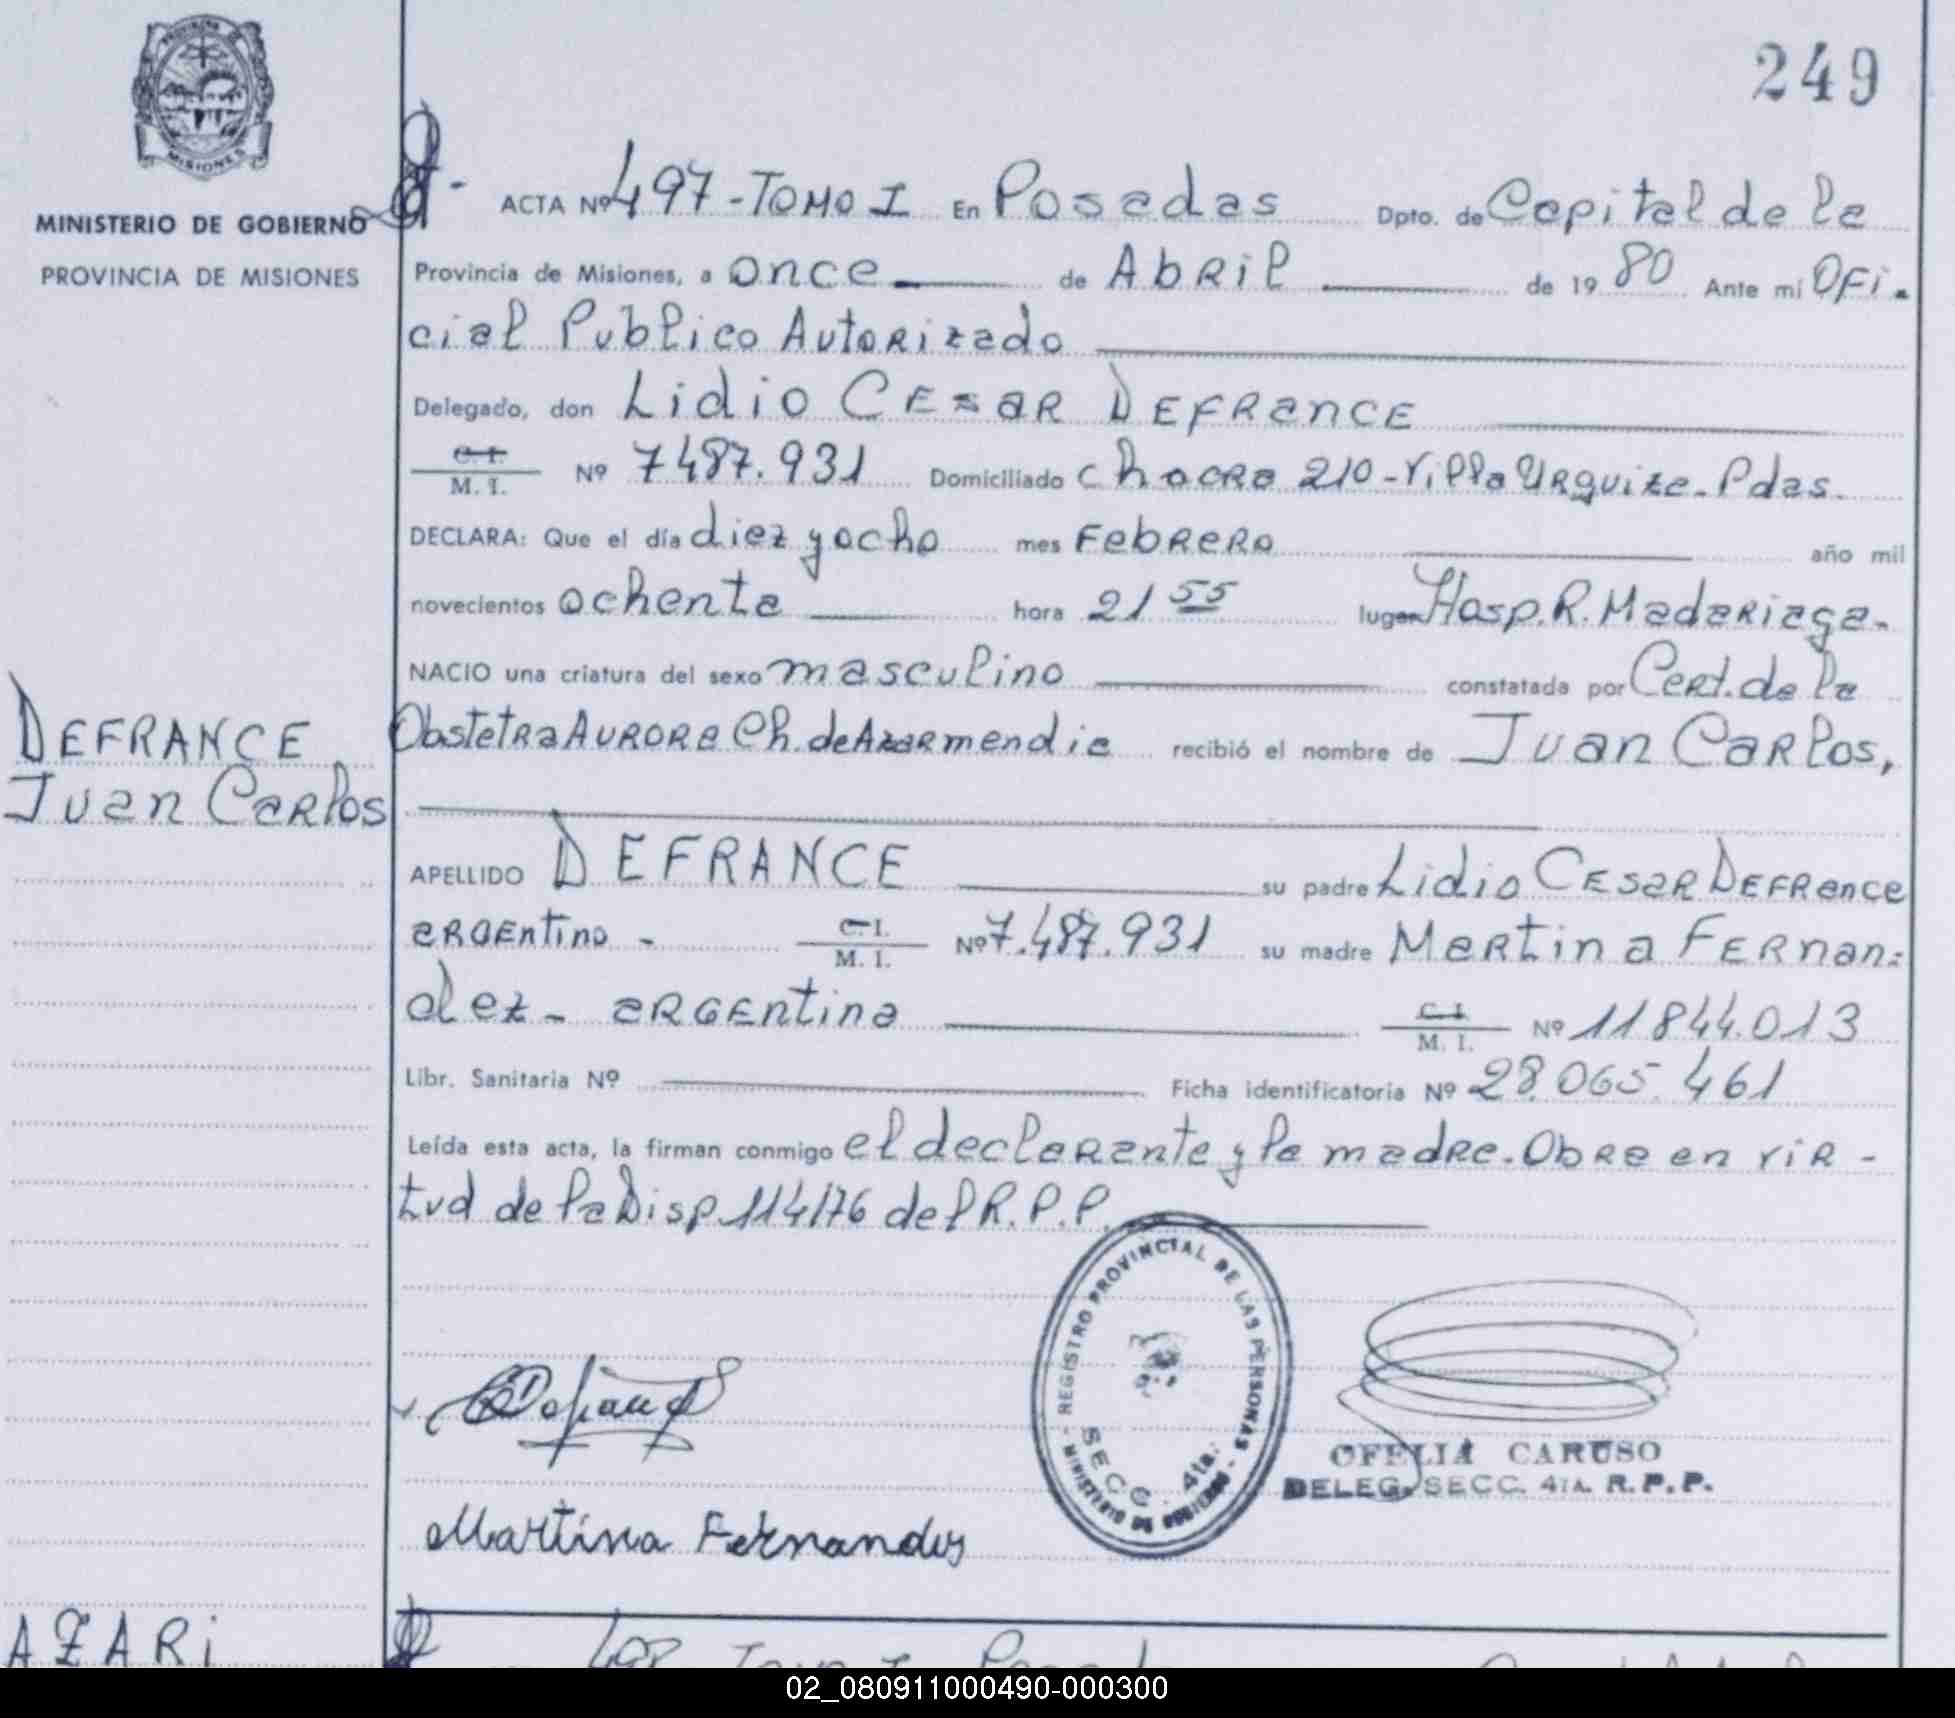 249
PROVINCIA DE
MISIONES
MINISTERIO DE GOBIERNO
PROVINCIA DE MISIONES
ACTA Nº 497-TOMO I En Posadas Dpto. de Capital de la
Provincia de Misiones, a once de Abril de 19 80 Ante mi Ofi-
cial Publico Autorizado
Delegado, don Lidio Cesar Defrance
C. I.
M. I. Nº 7487.931 Domiciliado chacra 210-Villa Urquiza-Pdas.
DECLARA: Que el día diez y ocho mes Febrero año mil
novecientos ochenta hora 21 55 lugar Hosp. R. Madariaga-
NACIO una criatura del sexo masculino constatada por Cert. de la
Obstetra Aurora Ch. de Azarmendia recibió el nombre de Juan Carlos,
DEFRANCE
Juan Carlos
APELLIDO DEFRANCE su padre Lidio Cesar Defrance
argentino - C. I.
M. I. Nº 7.487.931 su madre Martina Fernan-
dez - argentina C. I.
M. I. Nº 11844.013
Libr. Sanitaria Nº Ficha identificatoria Nº 28.065.461
Leída esta acta, la firman conmigo el declarante y la madre. Obra en vir-
tud de la Disp. 114/76 del R.P.P.
- REGISTRO PROVINCIAL DE LAS PERSONAS -
MINISTERIO DE GOBIERNO
SECC. 4ta.
OFELIA CARUSO
DELEG. SECC. 4TA. R.P.P.
Martina Fernandez
AZARI
498
02_080911000490-000300